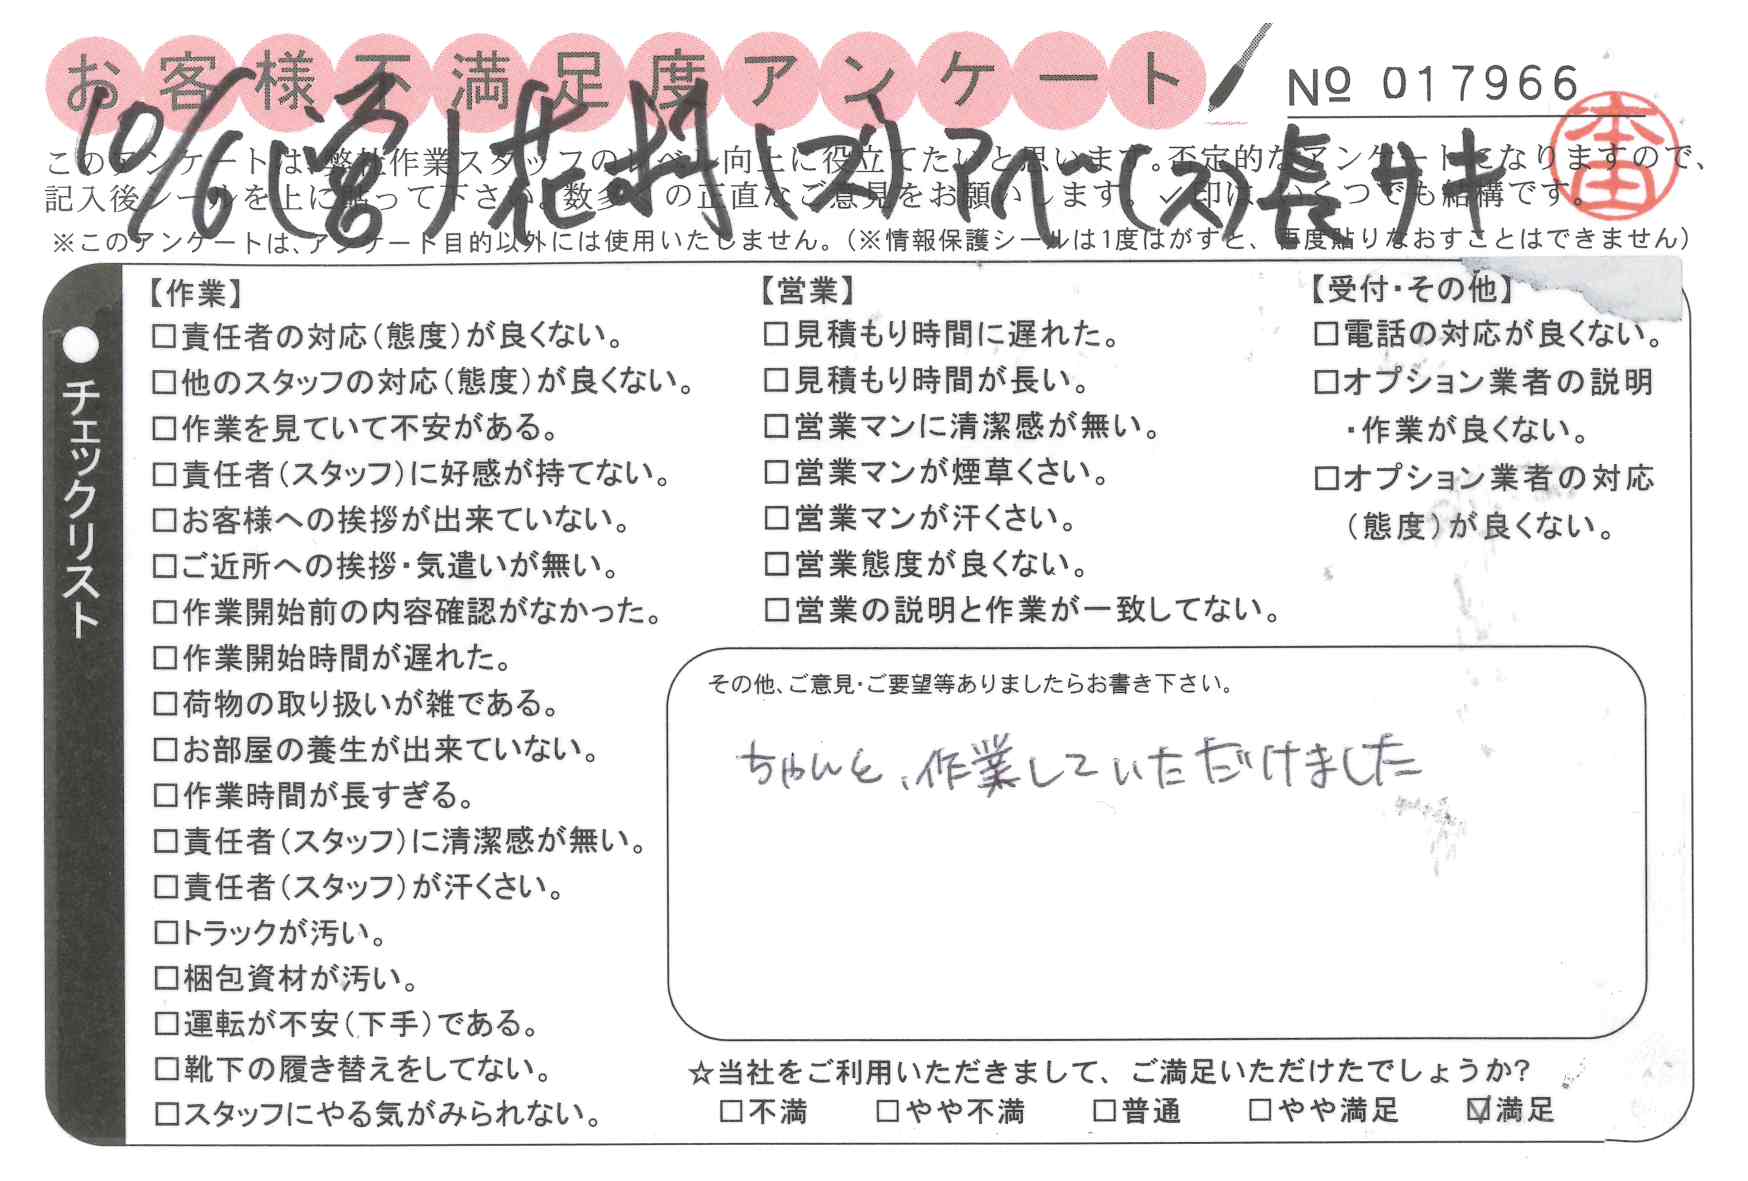 お客様不満足度アンケート
№ 017966
10/6(営)花村(ス)アベ(ス)長サキ
本田
このアンケートは、弊社作業スタッフのレベル向上に役立てたいと思います。否定的なアンケートになりますので、
記入後シールを上に貼って下さい。数多くの正直なご意見をお願いします。✓印は、いくつでも結構です。
※このアンケートは、アンケート目的以外には使用いたしません。(※情報保護シールは1度はがすと、再度貼りなおすことはできません)
●チェックリスト
【作業】
□責任者の対応(態度)が良くない。
□他のスタッフの対応(態度)が良くない。
□作業を見ていて不安がある。
□責任者(スタッフ)に好感が持てない。
□お客様への挨拶が出来ていない。
□ご近所への挨拶・気遣いが無い。
□作業開始前の内容確認がなかった。
□作業開始時間が遅れた。
□荷物の取り扱いが雑である。
□お部屋の養生が出来ていない。
□作業時間が長すぎる。
□責任者(スタッフ)に清潔感が無い。
□責任者(スタッフ)が汗くさい。
□トラックが汚い。
□梱包資材が汚い。
□運転が不安(下手)である。
□靴下の履き替えをしてない。
□スタッフにやる気がみられない。
【営業】
□見積もり時間に遅れた。
□見積もり時間が長い。
□営業マンに清潔感が無い。
□営業マンが煙草くさい。
□営業マンが汗くさい。
□営業態度が良くない。
□営業の説明と作業が一致してない。
【受付・その他】
□電話の対応が良くない。
□オプション業者の説明
・作業が良くない。
□オプション業者の対応
(態度)が良くない。
その他、ご意見・ご要望等ありましたらお書き下さい。
ちゃんと、作業していただけました
☆当社をご利用いただきまして、ご満足いただけたでしょうか?
□不満 □やや不満 □普通 □やや満足 ☑満足